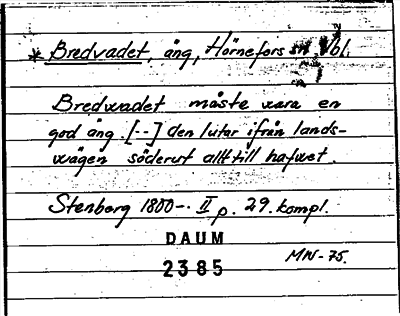 * Bredvadet, äng, Hörnefors sn, Vbl.
Bredwadet måste wara en
god äng. [--] den lutar ifrån lands-
wägen söderut allt till hafwet.
Stenberg 1800-. II p. 29. kompl.
DAUM
2385
MW-75.